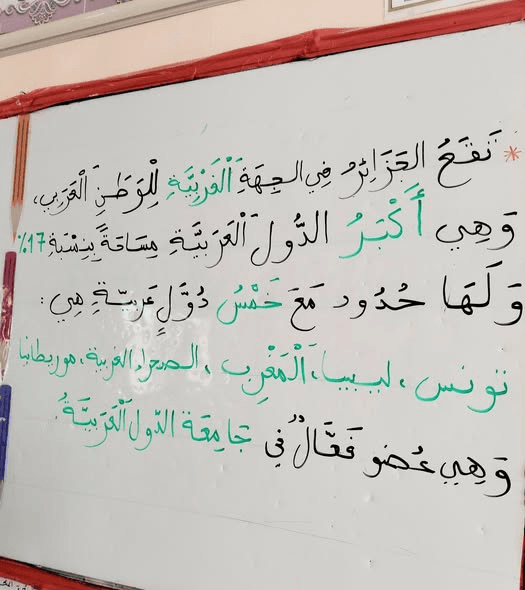 * تَقَعُ الجَزَائِرُ فِي الجِهَةِ الْغَرْبِيَّةِ لِلْوَطَنِ الْعَرَبِي،
وَهِي أَكْبَرُ الدُّولِ الْعَرَبِيَّةِ مِسَاحَةً بِنِسْبَةِ 17%
وَلَهَا حُدُود مَعَ خَمْسُ دُوَّلٍ عَرَبِيَّةٍ هِيَ :
تونس ، ليبيا، الْمَغْرِب ، الصحراء الغربية، موريطانيا
وَهِي عُضو فَعَّالٌ في جَامِعَة الدّول الْعَرَبِيَّةُ.